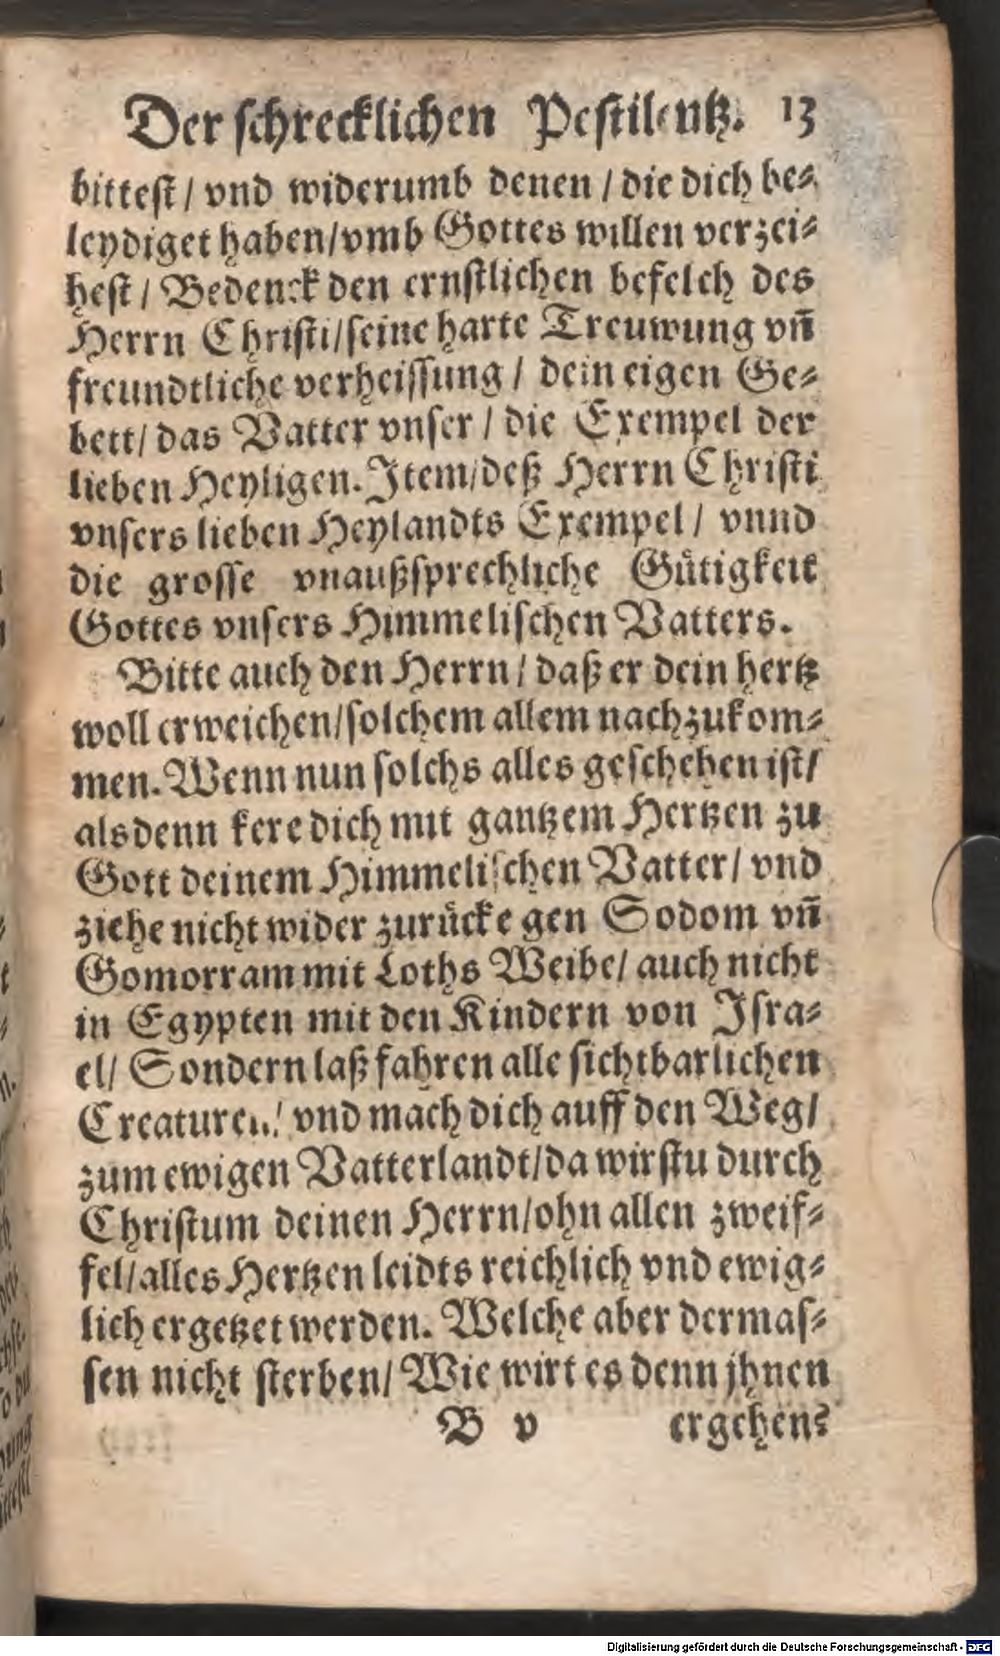 Der schrecklichen Pestilentz. 13
bittest / vnd widerumb denen / die dich be⸗
leydiget haben/vmb Gottes willen verzei⸗
hest / Bedenck den ernstlichen befelch des
Herrn Christi/seine harte Treuwung vñ
freundtliche verheissung / dein eigen Ge⸗
bett/ das Vatter vnser / die Exempel der
lieben Heyligen. Item/deß Herrn Christi
vnsers lieben Heylandts Exempel / vnnd
die grosse vnaußsprechliche Gütigkeit
Gottes vnsers Himmelischen Vatters.
Bitte auch den Herrn / daß er dein hertz
woll erweichen/solchem allem nachzukom⸗
men. Wenn nun solchs alles geschehen ist/
alsdenn kere dich mit gantzem Hertzen zu
Gott deinem Himmelischen Vatter/ vnd
ziehe nicht wider zurücke gen Sodom vñ
Gomorram mit Loths Weibe/ auch nicht
in Egypten mit den Kindern von Isra⸗
el/ Sondern laß fahren alle sichtbarlichen
Creaturen/ vnd mach dich auff den Weg/
zum ewigen Vatterlandt/da wirstu durch
Christum deinen Herrn/ohn allen zweif⸗
fel/alles Hertzen leidts reichlich vnd ewig⸗
lich ergetzet werden. Welche aber dermas⸗
sen nicht sterben/ Wie wirt es denn jhnen
B v ergehen?
Digitalisierung gefördert durch die Deutsche Forschungsgemeinschaft - DFG